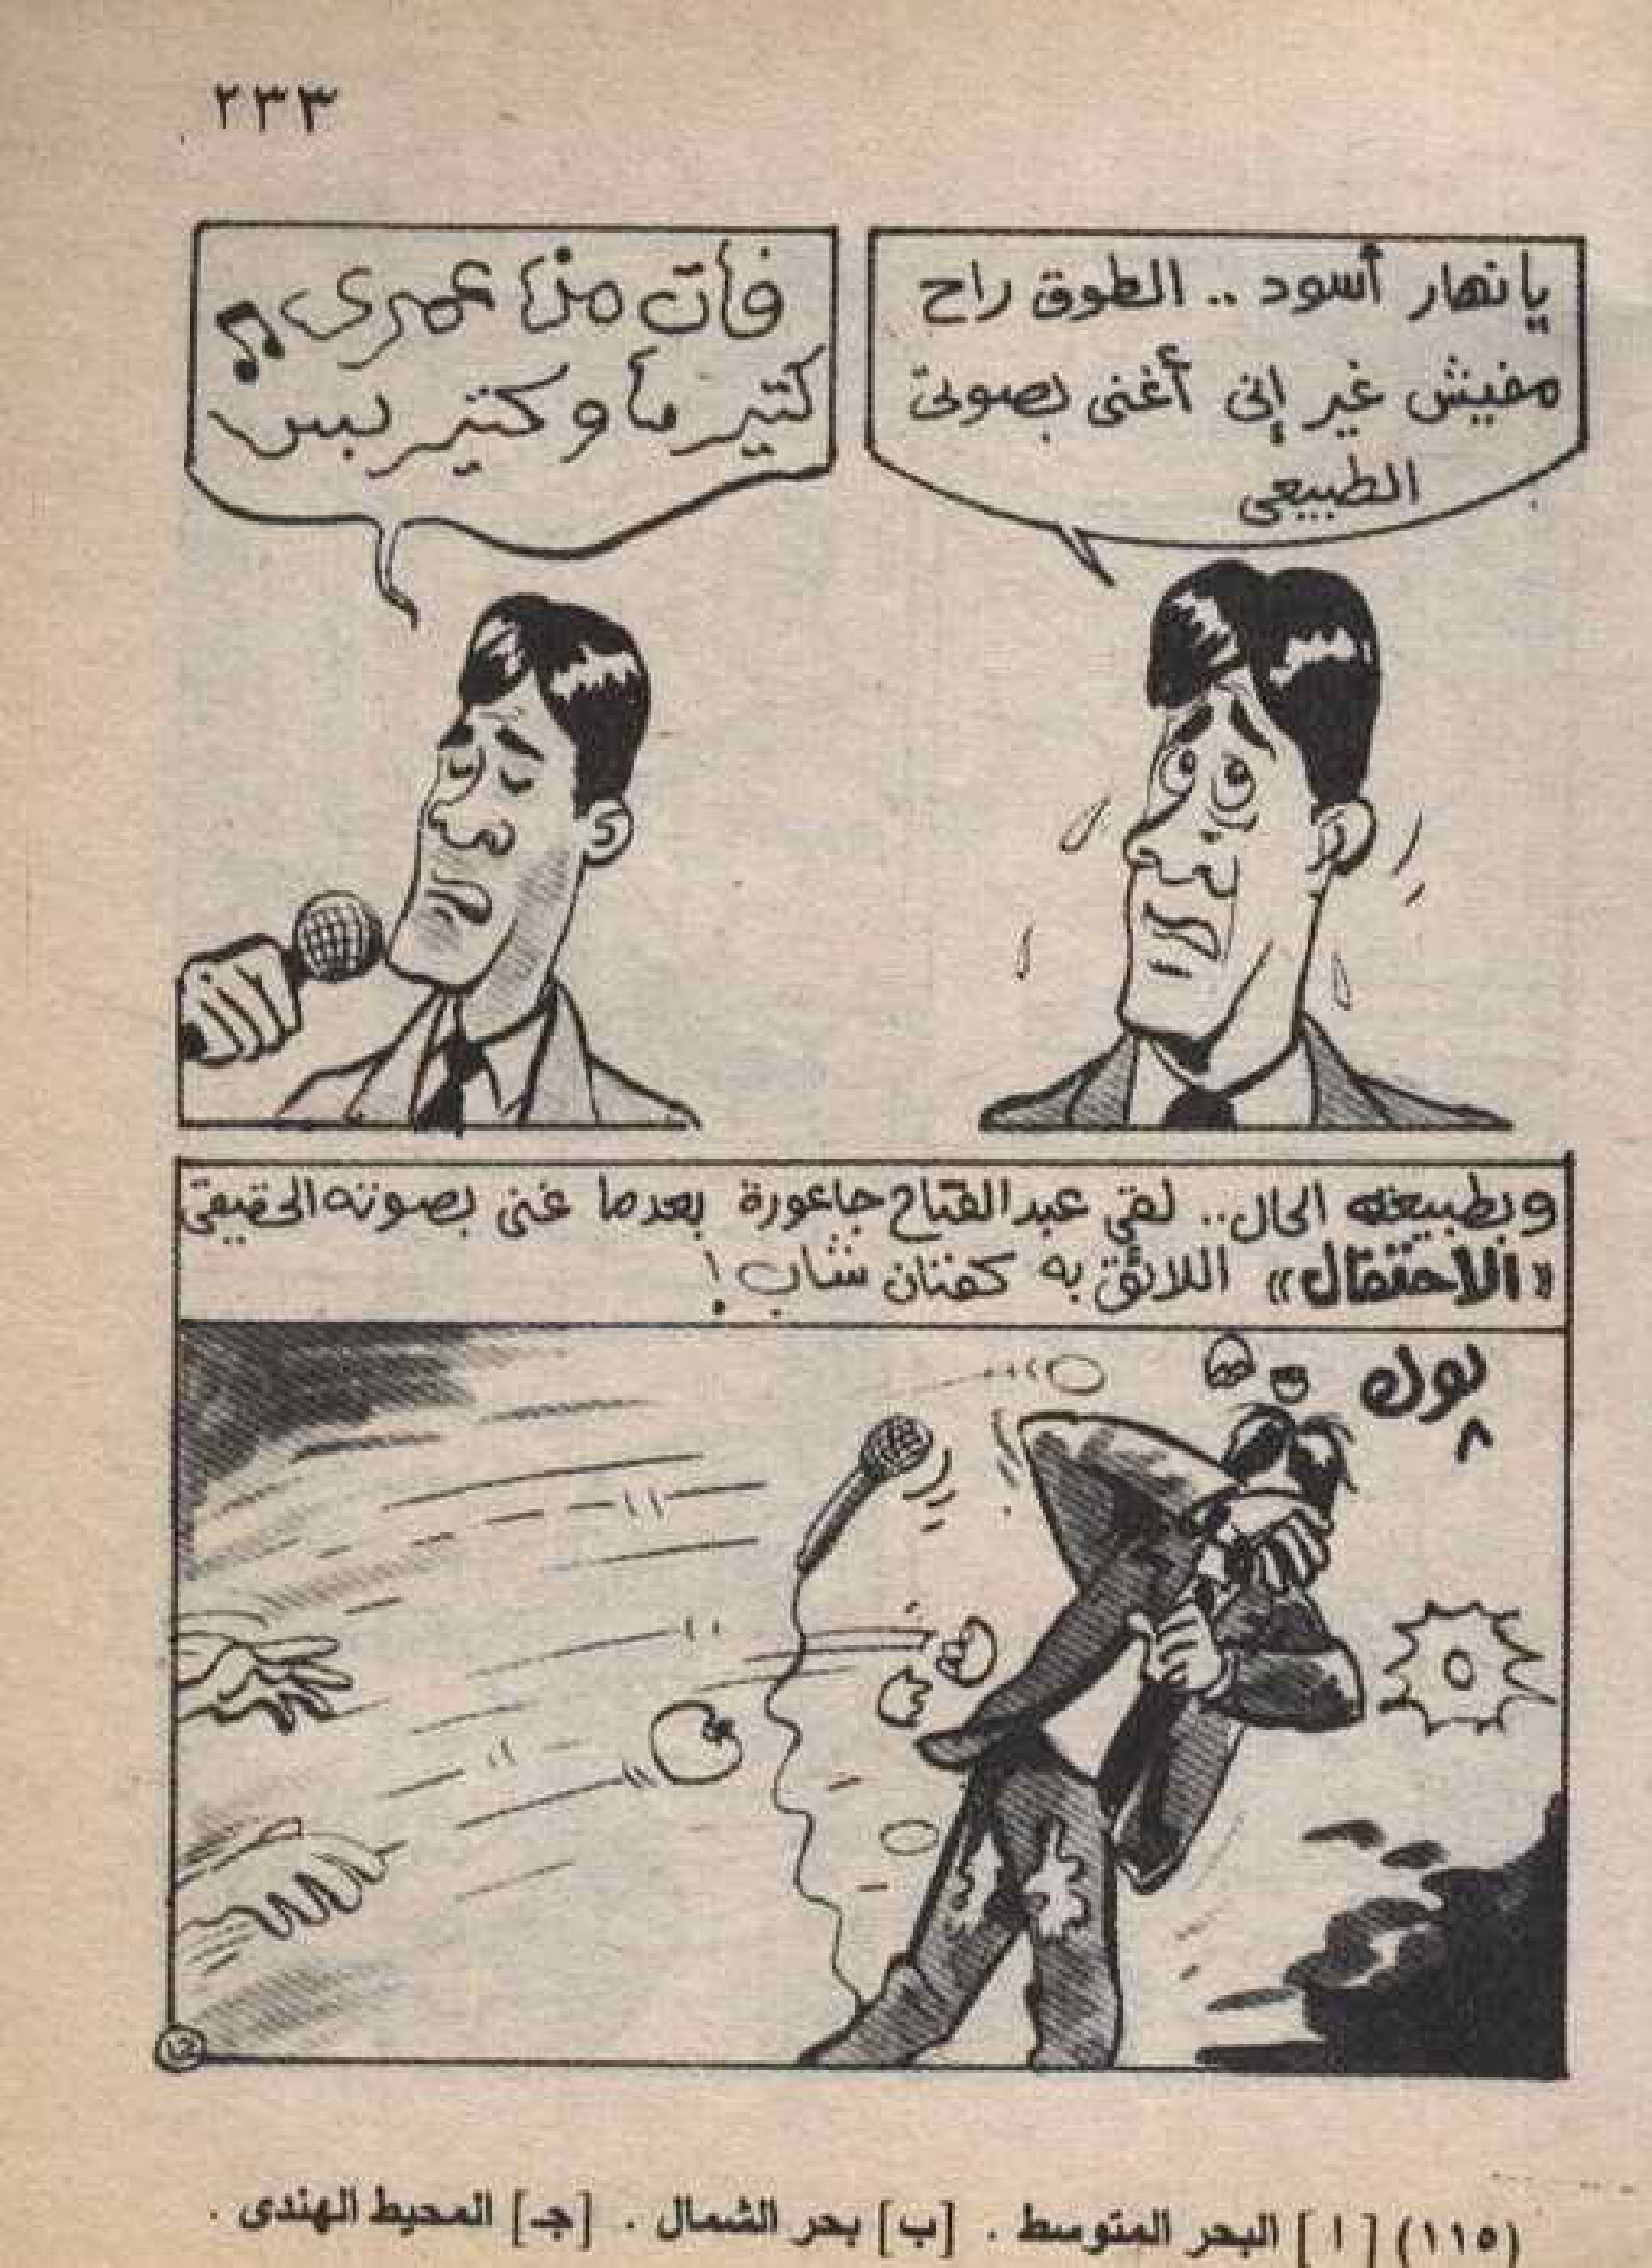 ٢٣٣
يا نهار أسود .. الطوق راح
مفيش غير إنى أغنى بصوتى
الطبيعى
فات من عمرى
كتير يا وكتير بس
وبطبيعة الحال.. لقى عبد الفتاح جاعورة بعدما غنى بصوته الحقيقى
«الاحتفال» اللائق به كفنان شاب !
بوك
١٢
(١١٥) [ ا ] البحر المتوسط . [ب] بحر الشمال . [جـ] المحيط الهندى .